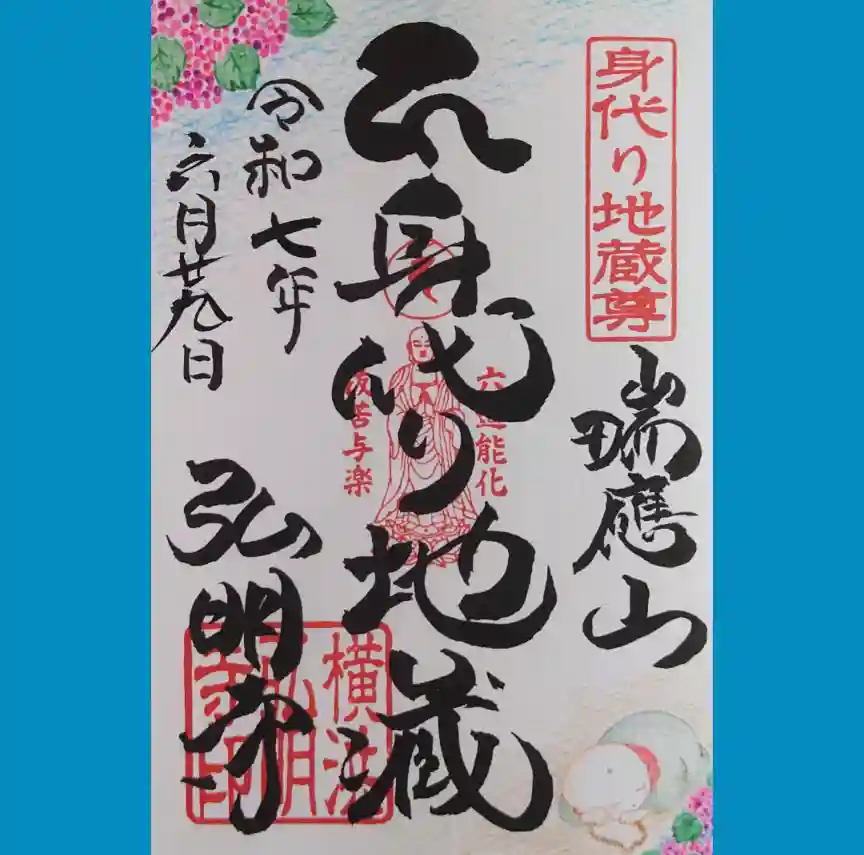 身代り地蔵尊
瑞應山
六道能化
身代り地蔵
抜苦与楽
令和七年
六月廿九日
弘明寺
横浜
弘明
寺印